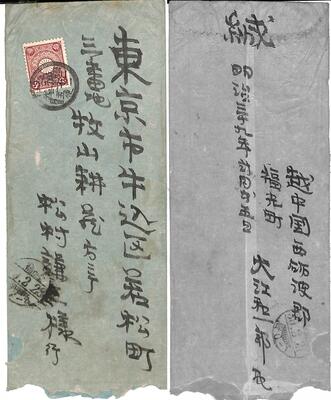 東京市牛込区若松町
三番地
牧山耕蔵方ニテ
松村謙三様
行
緘
明治三十九年
越中国西砺波郡
福光町
大江和一郎